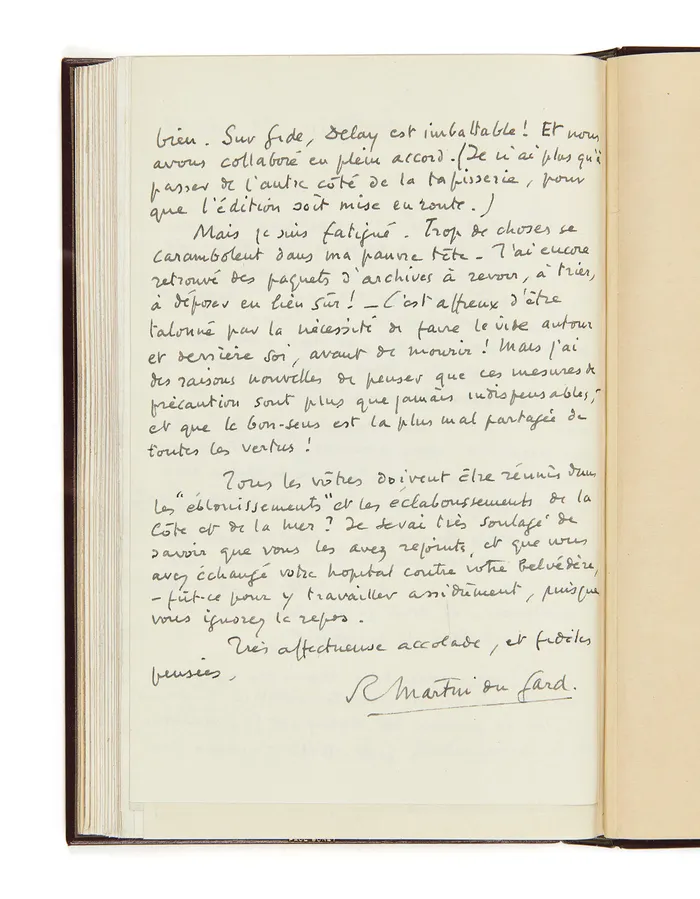 bien. Sur Gide, Delay est imbattable ! Et nous
avons collaboré en plein accord. (Je n'ai plus qu'à
passer de l'autre côté de la tapisserie, pour
que l'édition soit mise en route.)
Mais je suis fatigué. Trop de choses se
carambolent dans ma pauvre tête – J'ai encore
retrouvé des paquets d'archives à revoir, à trier,
à déposer en lieu sûr ! – C'est affreux d'être
talonné par la nécessité de faire le vide autour
et derrière soi, avant de mourir ! Mais j'ai
des raisons nouvelles de penser que ces mesures de
précaution sont plus que jamais indispensables, –
et que le bon-sens est la plus mal partagée de
toutes les vertus !
Tous les vôtres doivent être réunis dans
les "éblouissements" et les éclaboussements de la
Côte et de la mer ? Je serai très soulagé de
savoir que vous les avez rejoints, et que vous
avez échangé votre hopital contre votre Belvédère,
– fût-ce pour y travailler assidrement, puisque
vous ignorez le repos.
Très affectueuse accolade, et fidèles
pensées,
R Martin du Gard.